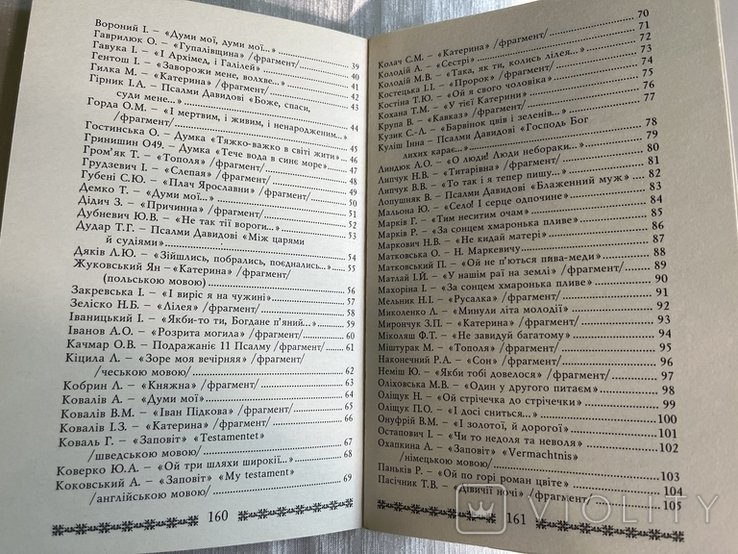 Вороний І. – «Думи мої, думи мої...»
Гаврилюк О. – «Гупалівщина» /фрагмент/ 39
Гавука І. – «Архімед, і Галілей» 40
Гентош І. – «Заворожи мене, волхве...» 41
Гилка М. – «Катерина» /фрагмент/ 42
Гірник І.Д. – Псалми Давидові «Боже, спаси,
суди мене...» 43
Горда О.М. – «І мертвим, і живим, і ненародженим...»
/фрагмент/ 44
Гостинська О. – Думка «Тяжко-важко в світі жити» 45
Гринишин О49. – Думка «Тече вода в синє море» 46
Гром'як Т. – «Тополя» /фрагмент/ 47
Грудзевич І. – «Слепая» /фрагмент/ 48
Губені С.Ю. – «Плач Ярославни» /фрагмент/ 49
Демко Т. – «Думи мої...» 50
Дідич З. – «Причинна» /фрагмент/ 51
Дубневич Ю.В. – «Не так тії вороги...» 52
Дудар Т.Г. – Псалми Давидові «Між царями
й судіями» 53
Дяків Л.Ю. – «Зійшлись, побрались, поєднались...» 54
Жуковський Ян – «Катерина» /фрагмент/ 55
(польською мовою) 56
Закревська І. – «І виріс я на чужині» 57
Зеліско Н.Б. – «Лілея» /фрагмент/ 58
Іваницький І. – «Якби-то ти, Богдане п'яний...» 59
Іванов А.О. – «Розрита могила» /фрагмент/ 60
Качмар О.В. – Подражаніє 11 Псалму /фрагмент/ 61
Кіцила Л. – «Зоре моя вечірняя» /фрагмент/
/чеською мовою/ 62
Кобрин Л. – «Княжна» /фрагмент/ 63
Ковалів А. – «Думи мої» 64
Ковалів В.М. – «Іван Підкова» /фрагмент/ 65
Ковалів І.З. – «Катерина» /фрагмент/ 66
Коваль Г. – «Заповіт» «Testamentet»
/шведською мовою/ 67
Коверко Ю.А. – «Ой три шляхи широкії...» 68
Коковський А. – «Заповіт» «My testament»
/англійською мовою/ 69
160
70
Колач С.М. – «Катерина» /фрагмент/ 71
Колодій А. – «Сестрі» 72
Колодій М.В. – «Така, як ти, колись лілея...» 73
Костецька І.І. – «Пророк» /фрагмент/ 74
Костіна Т.Ю. – «Ой я свого чоловіка» 75
Кохана Т.М. – «У тієї Катерини» 76
Крупа В. – «Кавказ» /фрагмент/ 77
Кузик С.-Л. – «Барвінок цвів і зеленів...»
Куліш Інна – Псалми Давидові «Господь Бог
лихих карає...» 78
Линдюк А.О. – «О люди! Люди небораки... 79
Липчук Н.В. – «Титарівна» /фрагмент/ 80
Липчук В.В. – «То так і я тепер пишу...» 81
Лопушняк В. – Псалми Давидові «Блаженний муж» 82
Мальона Ю. – «Село! І серце одпочине» 83
Марків Г. – «Тим неситим очам» 84
Марків Р. – «За сонцем хмаронька пливе» 85
Маркович Н.В. – «Не кидай матері» 86
Матковська О. – Н. Маркевичу 87
Матковський П. – «Ой не п'ються пива-меди» 88
Матлай І.Й. – «У нашім раї на землі» /фрагмент/ 89
Махоріна І. – «За сонцем хмаронька пливе» 90
Мельник Н.І. – «Русалка» /фрагмент/ 91
Миколенко Л. – «Минули літа молодії» 92
Мирончук З.П. – «Катерина» /фрагмент/ 93
Міколяш Ф.Т. – «Не завидуй багатому» 94
Міштурак М. – «Тополя» /фрагмент/ 95
Наконечний Р.А. – «Сон» /фрагмент/ 96
Неміш Ю. – «Якби тобі довелося» /фрагмент/ 97
Оліховська М.В. – «Один у другого питаєм» 98
Оліщук Н. – «Ой стрічечка до стрічечки» 99
Оліщук П.О. – «І досі сниться...» 100
Онуфрій В.М. – «І золотої, й дорогої» 101
Остапович І. – «Чи то недоля та неволя» 102
Охапкина А. – «Заповіт» «Vermachtnis»
/німецькою мовою/ 103
Паньків Р. – «Ой по горі роман цвіте» 104
Пасічник Т.В. – «Дівичії ночі» /фрагмент/ 105
161
VIOLITY